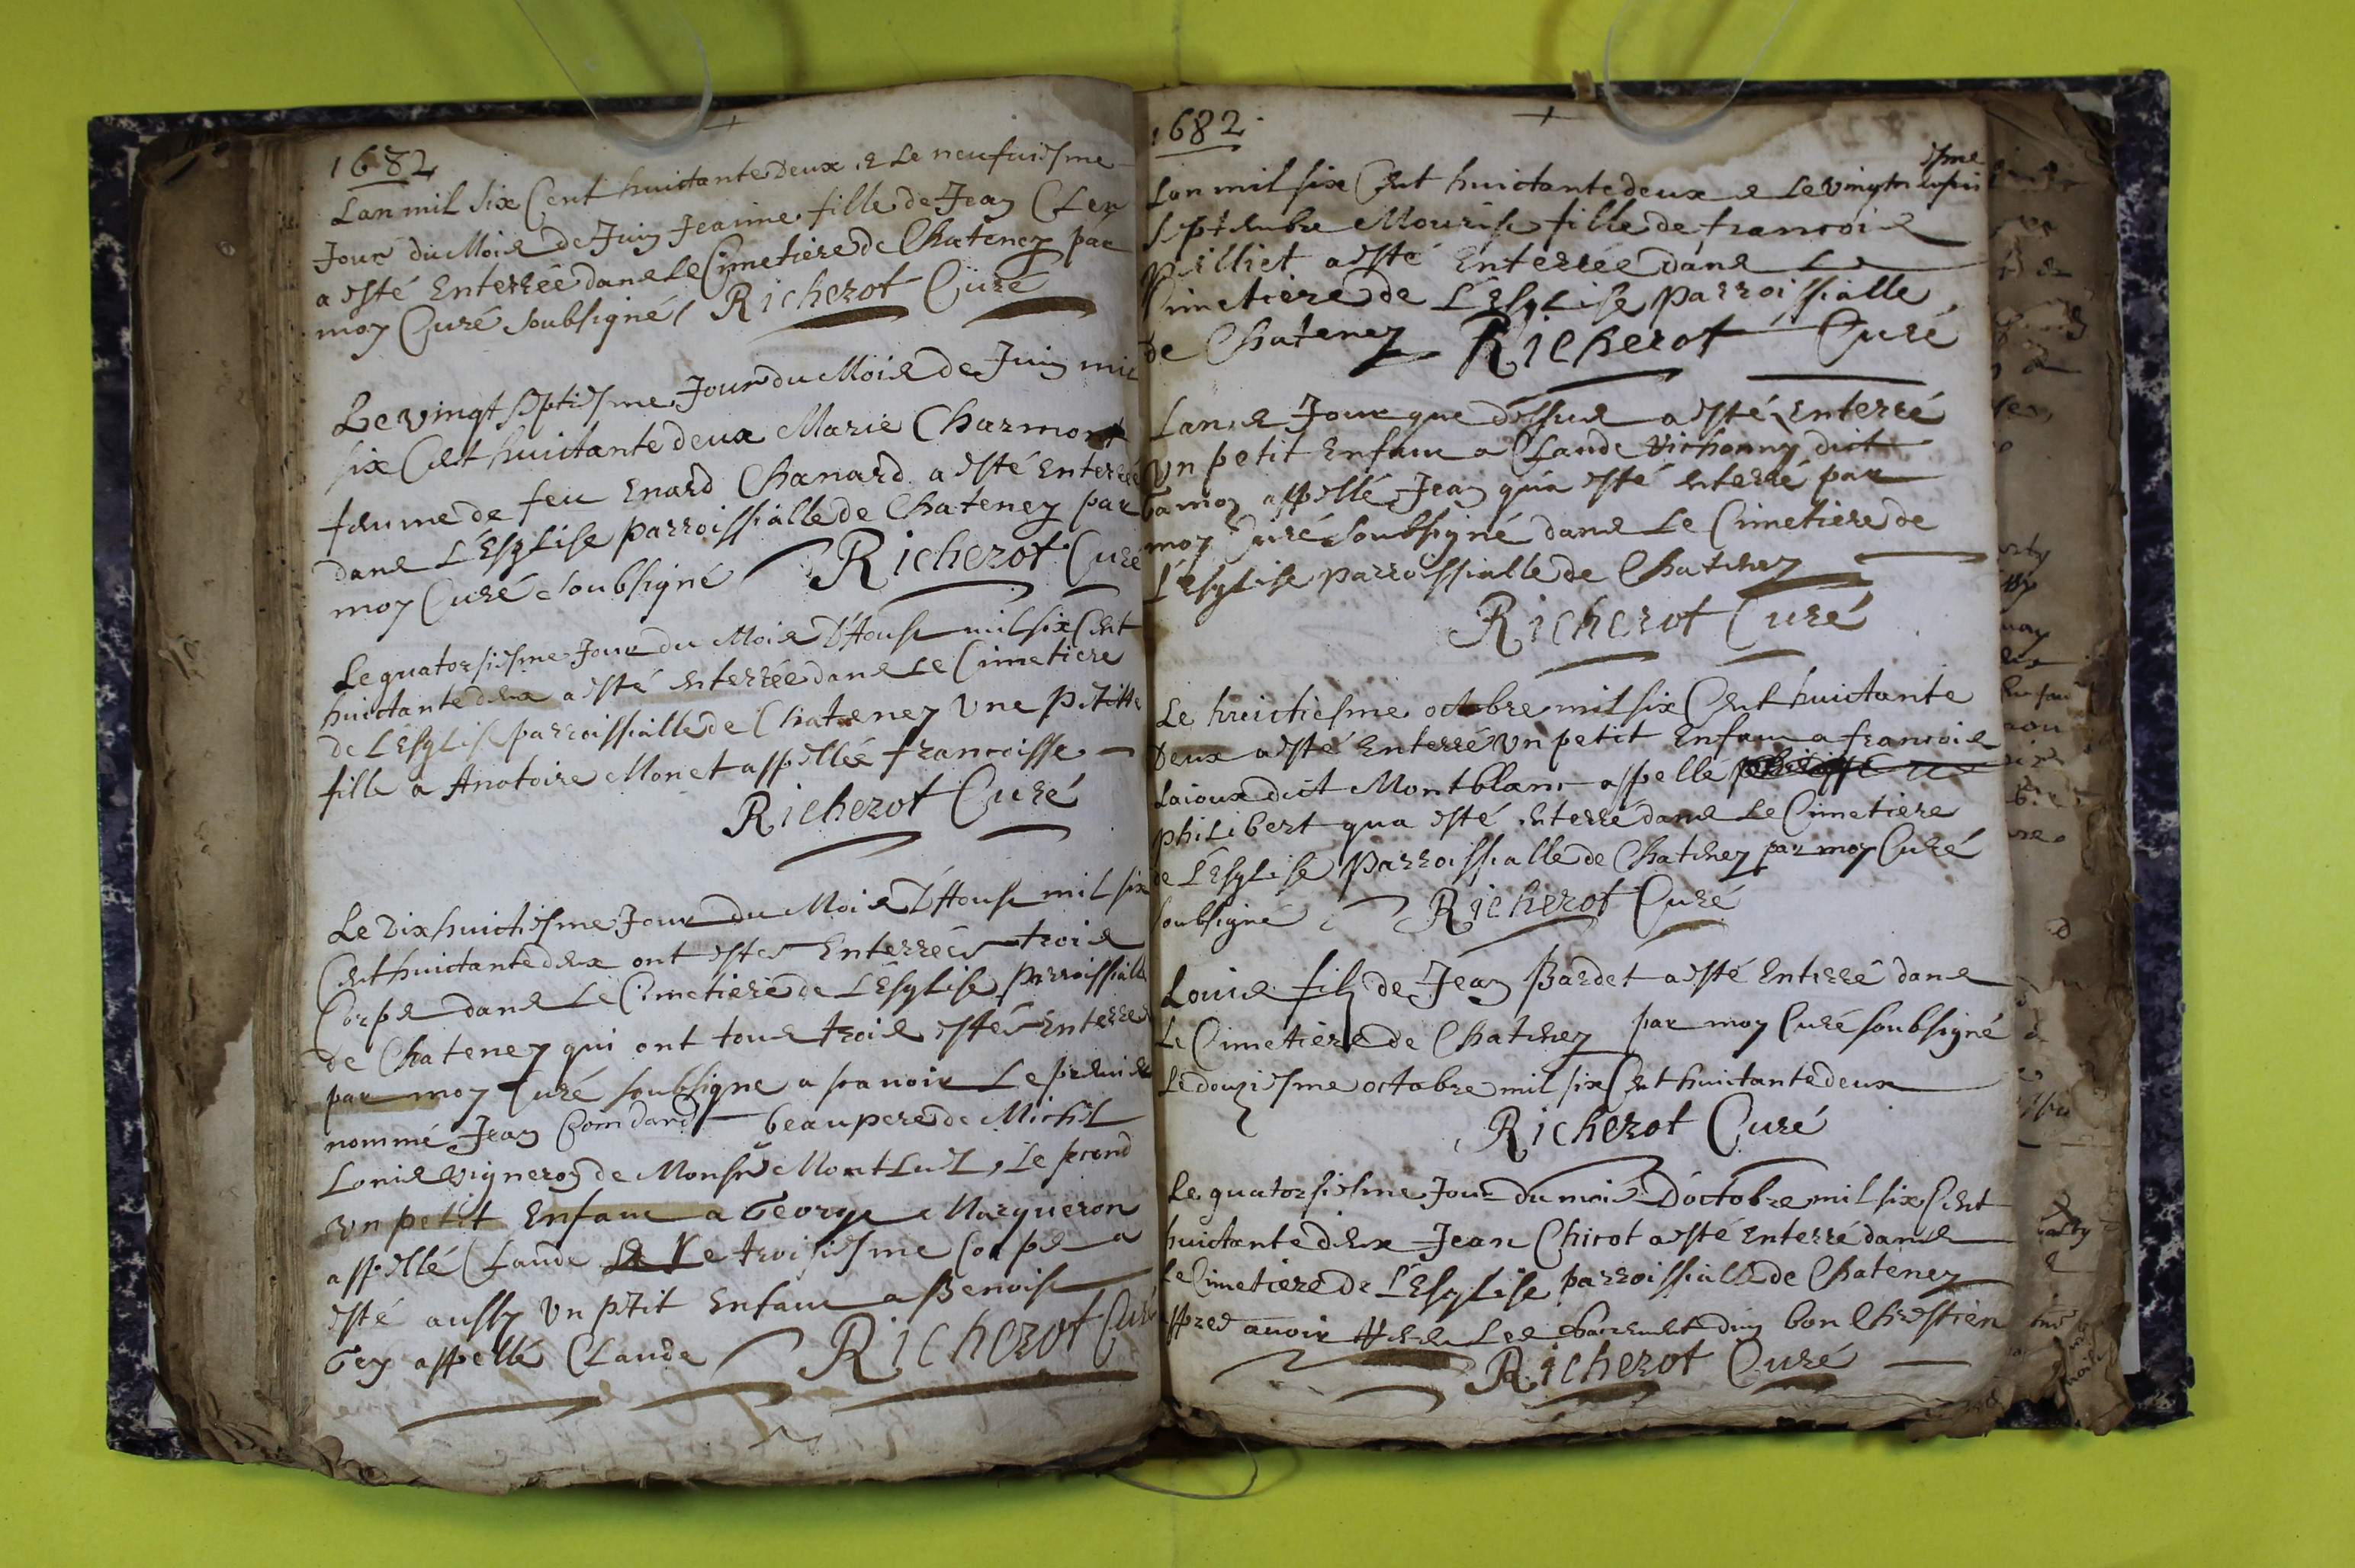 1682
Lan mil six Cent huictante Deux & Le neufuiesme
Jour du Mois de Juin Jeanne fille de Jean Clen
a esté Enterrée dans Le Cimetiere de Chatenez par
moy Curé soubsigné Richerot Curé
Le vingt septiesme Jour du Mois de Juin mil
six Cent huictante deux Marie Charmont
femme de feu Enard Chanard a esté Enterrée
dans L'Esglise parroissialle de Chatenez par
moy Curé soubsigné Richerot Curé
Le quatorsiesme Jour du Mois D'Aoust mil six Cent
huictante deux a esté enterrée dans Le Cimetiere
de L'Esglise parroissialle de Chatenez une petitte
fille a Anatoire Monet appellée francoisse
Richerot Curé
Le Dix huictiesme Jour du Mois D'Aoust mil six
Cent huictante deux ont estes Enterrées trois
Corps dans Le Cimetiere de L'Esglise parroissialle
de Chatenez qui ont tous trois estés Enterres
par moy Curé soubsigne a scauoir Le premier
nommé Jean beaupere de Michel
Louis vigneron de Monsr Montluel, Le second
un petit Enfant a George Marqueron
appellé Claude Le troisiesme Corps a
esté aussy un petit Enfant a Benoist
Gey appellé Claude Richerot Curé
1682
Lan mil six Cent huictante deux & Le vingtroisiesme
Septembre Mourise fille de francois
Pilliet a esté Enterrée dans Le
Cimetiere de L'Esglise Parroissialle
de Chatenez Richerot Curé
Lan & Jour que dessus a esté Enterré
Un petit Enfant a Claude dict
appellé Jean qu'a esté enterré par
moy Curé soubsigné dans Le Cimetiere de
L'Esglise parroissialle de Chatenez
Richerot Curé
Le huictiesme octobre mil six Cent huictante
Deux a esté Enterré un petit Enfant a francois
Laioux dict Montblanc appellé
philibert qua esté enterré dans Le Cimetiere
de L'Esglise Parroissialle de Chatenez par moy Curé
soubsigné Richerot Curé
Louis filz de Jean Bardet a esté Enterré dans
Le Cimetiere de Chatenez par moy Curé soubsigné
Le douziesme octobre mil six Cent huictante deux
Richerot Curé
Le quatorsiesme Jour du mois D'octobre mil six Cent
huictante deux Jean Chirot a esté Enterré dans
Le Cimetiere de L'Esglise parroissialle de Chatenez
appres auoir Les d'un bon Chrestien
Richerot Curé